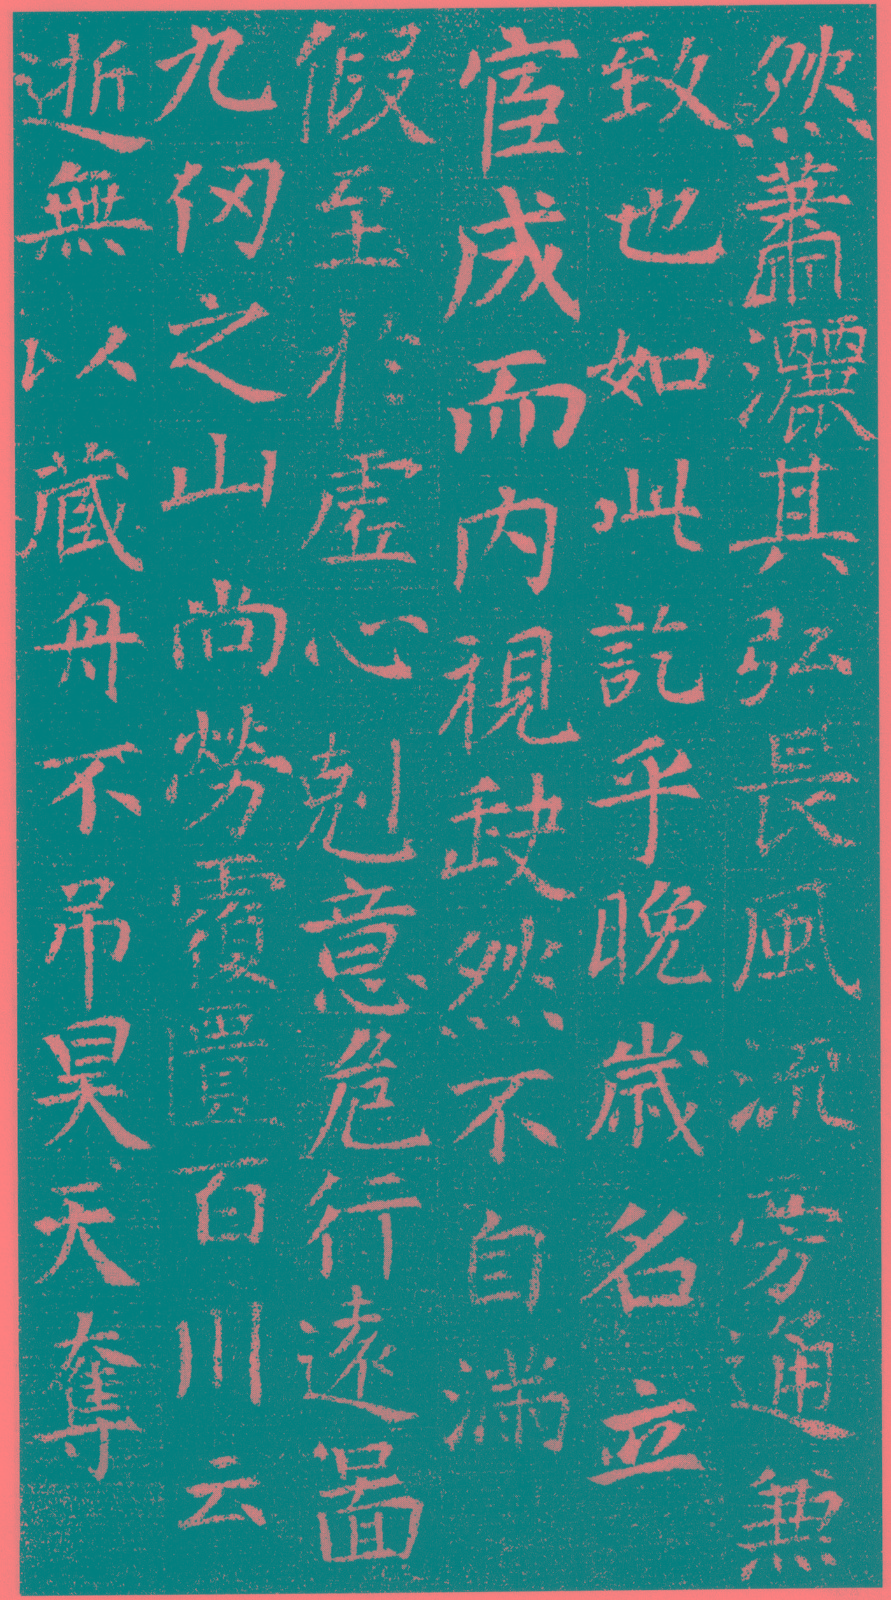 然蕭灑其弘長風流旁通兼
致也如此訖乎晚歲名立
宦成而內視缺然不自滿
假至於虛心剋意危行遠啚
九仞之山尚勞覆匱百川云
逝無以藏舟不吊昊天奪